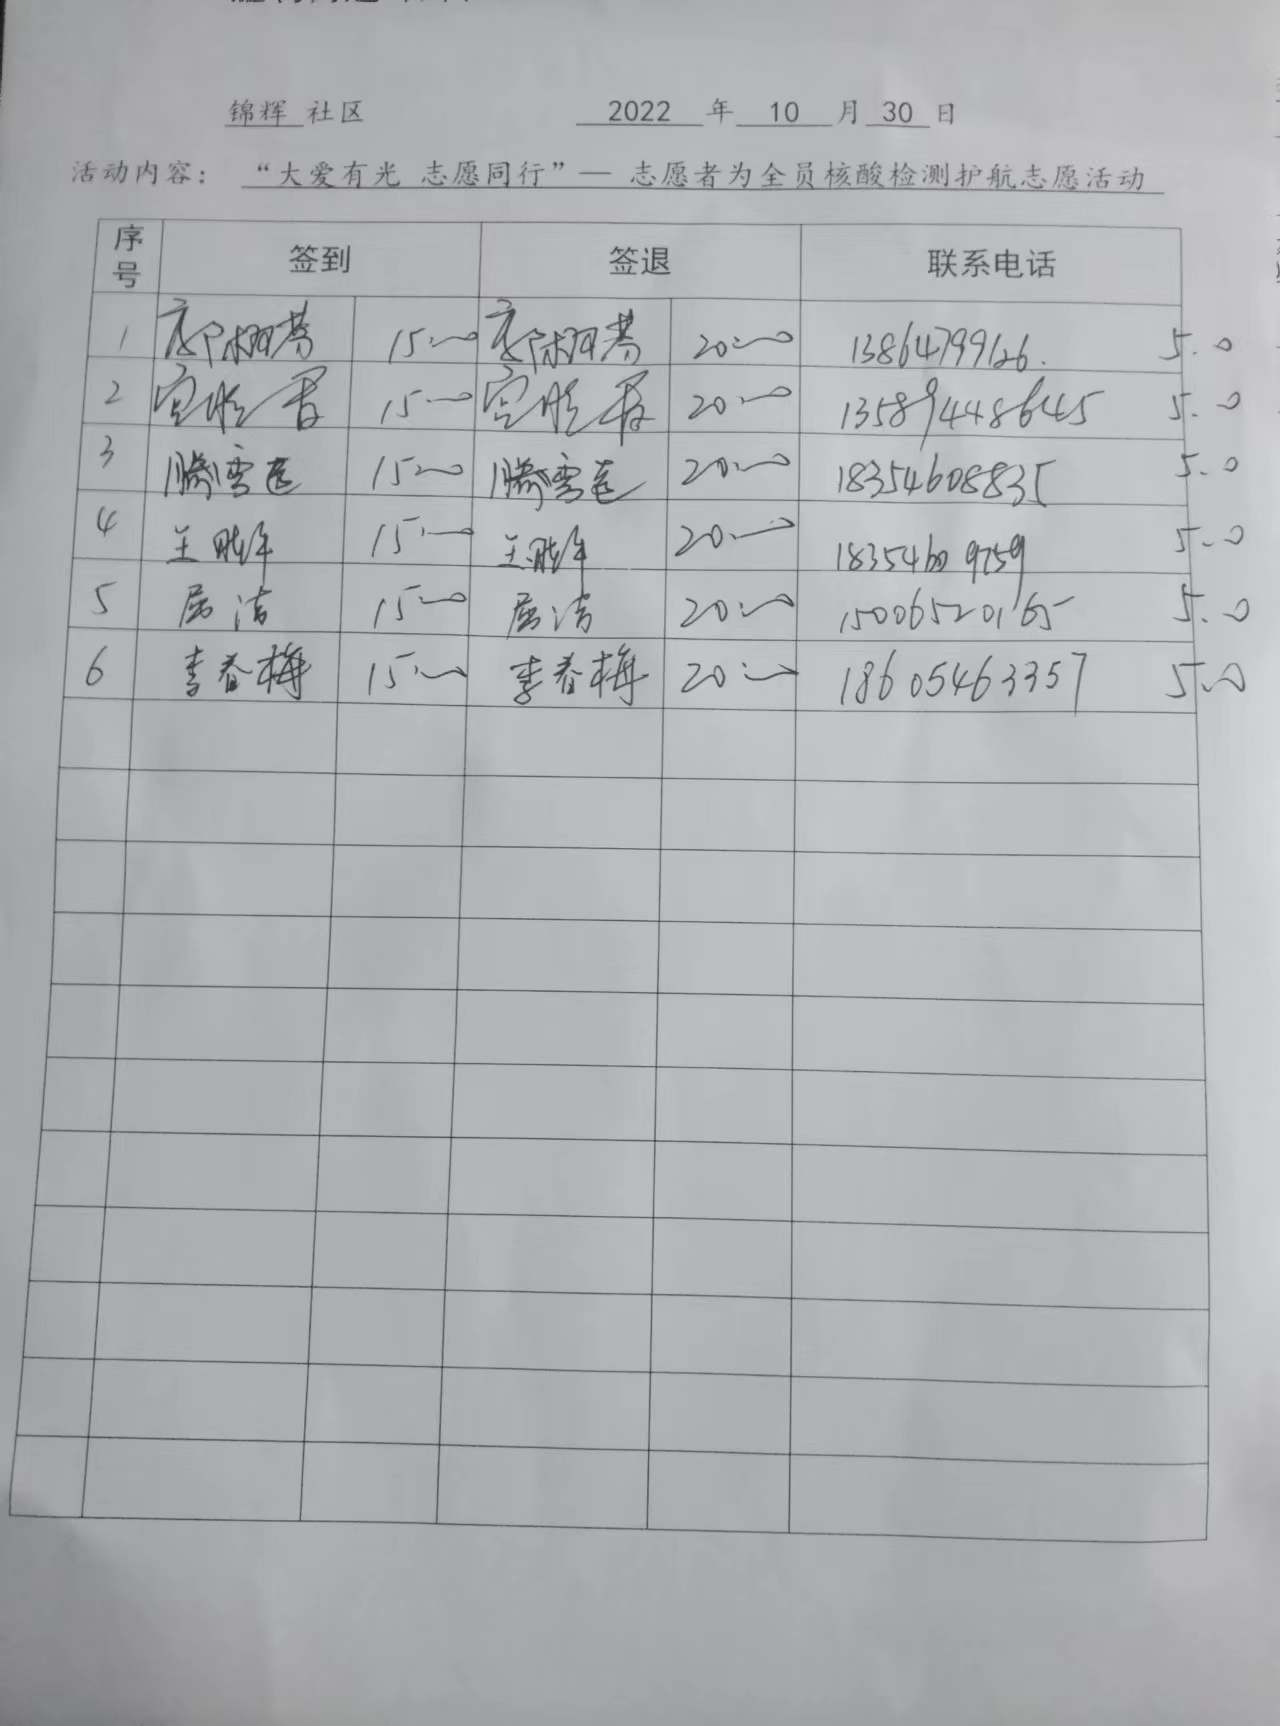 锦辉 社区 2022 年 10 月 30 日
活动内容： “大爱有光 志愿同行”— 志愿者为全员核酸检测护航志愿活动
序号 签到 签退 联系电话
1 15:00 20:00 13864799626. 5.0
2 15:00 20:00 13589448645 5.0
3 15:00 20:00 18354608835 5.0
4 15:00 20:00 5.0
5 15:00 20:00 15006520165 5.0
6 李春梅 15:00 李春梅 20:00 18605463357 5.0